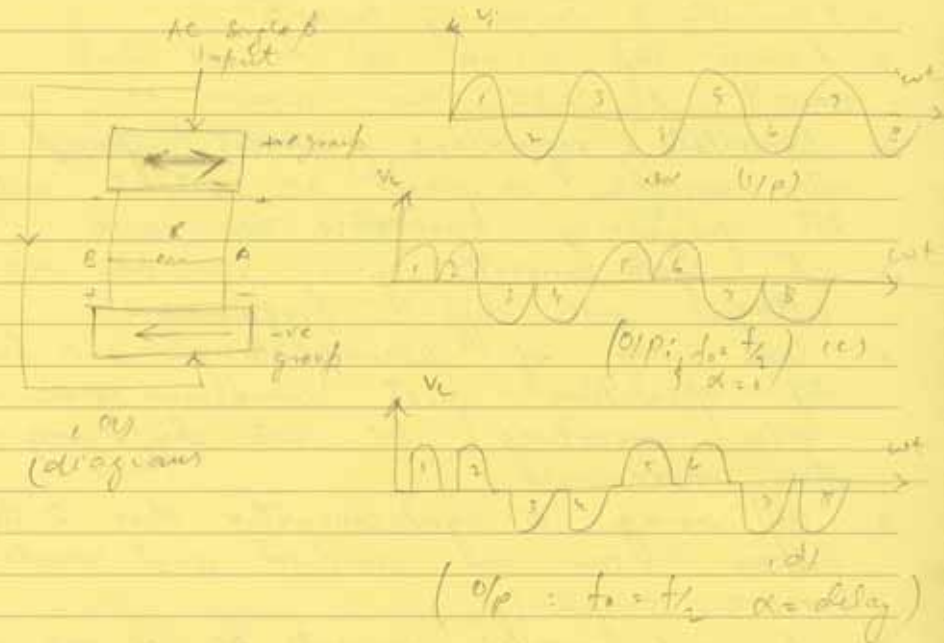 AC Single φ
Input
+ve group
- +
R
B A
+ -
-ve
group
(a)
(diagrams
Vi
ωt
1 2 3 5 6 7 8
(i/p)
VL
ωt
1 2 3 4 5 6 7 8
(O/P; fo = f/2) (c)
VL
ωt
1 2 3 4 5 6 7 8
(d)
(O/p : fo = f/2 α = delay)